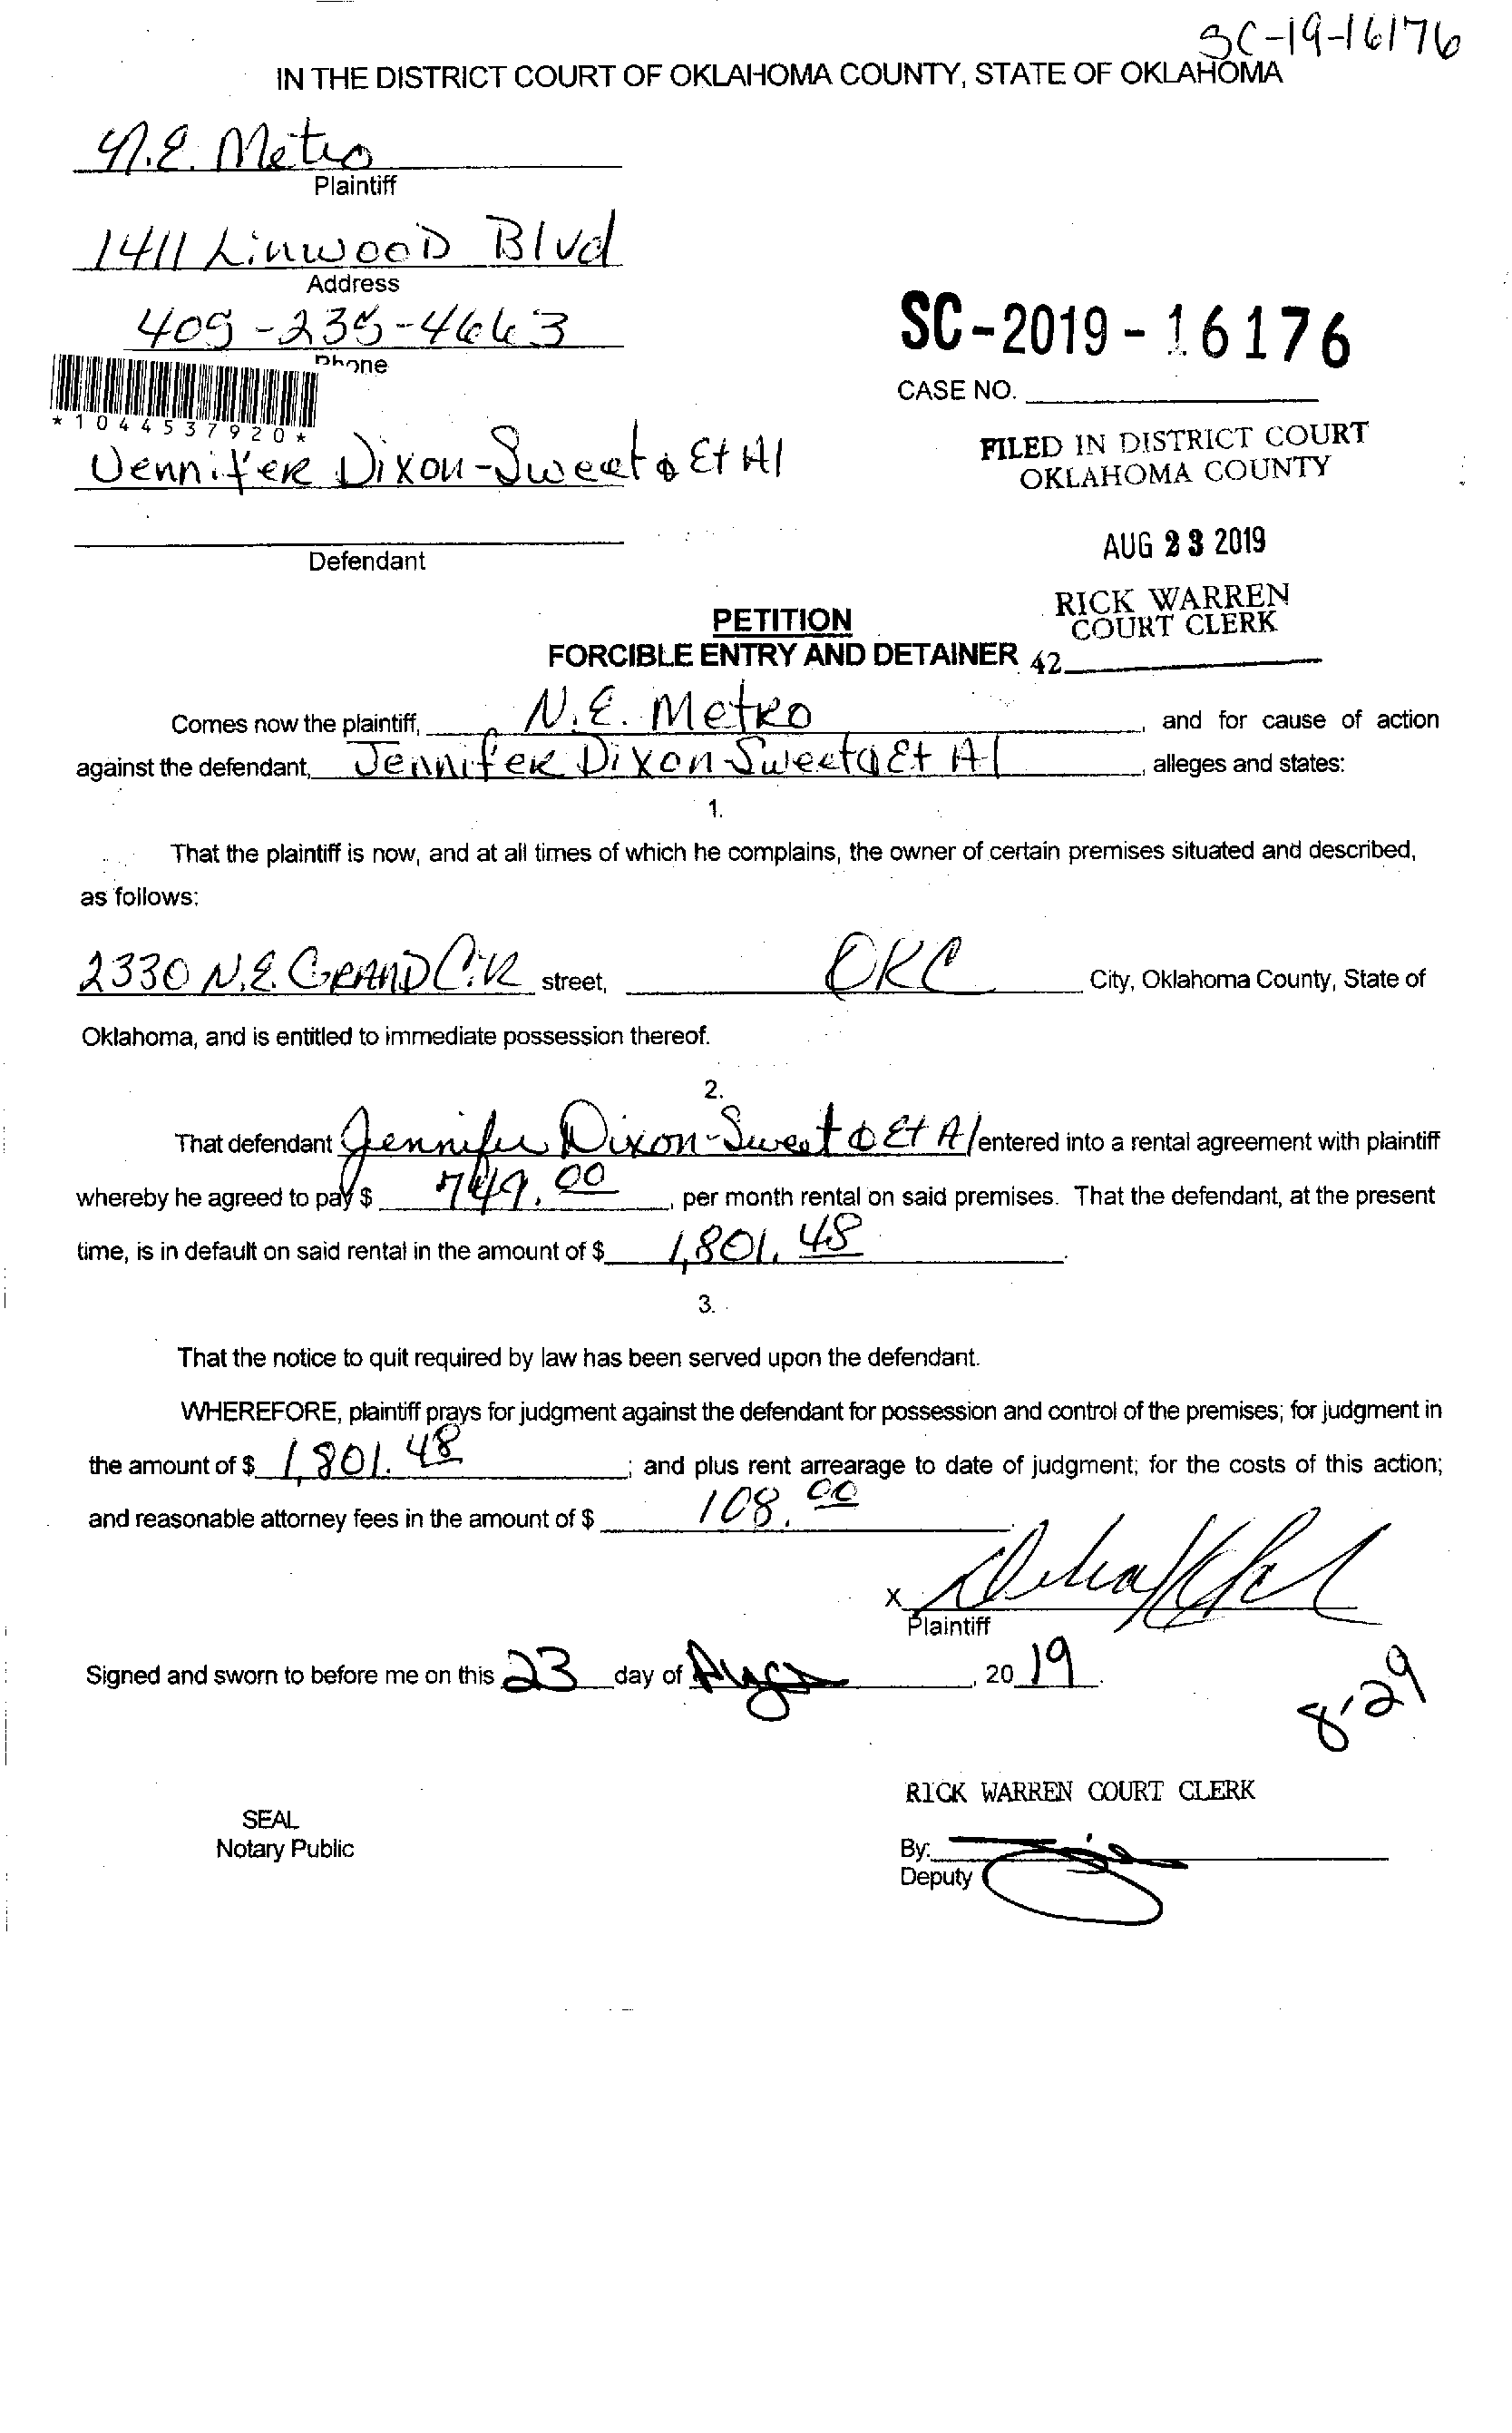 SC-19-16176
IN THE DISTRICT COURT OF OKLAHOMA COUNTY, STATE OF OKLAHOMA
N.E. Metro
Plaintiff
1411 LinwooD Blvd
Address
405-235-4663
Phone
*1044537920*
SC-2019-16176
CASE NO.
Jennifer Dixon-Sweet & Et Al
FILED IN DISTRICT COURT
OKLAHOMA COUNTY
AUG 23 2019
Defendant
RICK WARREN
COURT CLERK
PETITION
FORCIBLE ENTRY AND DETAINER 42
Comes now the plaintiff, N.E. Metro, and for cause of action
against the defendant, Jennifer Dixon-Sweet & Et Al, alleges and states:
1.
That the plaintiff is now, and at all times of which he complains, the owner of certain premises situated and described,
as follows:
2330 N.E. GRAND CiR street, OKC City, Oklahoma County, State of
Oklahoma, and is entitled to immediate possession thereof.
2.
That defendant Jennifer Dixon-Sweet & Et Al entered into a rental agreement with plaintiff
whereby he agreed to pay $ 749.00, per month rental on said premises. That the defendant, at the present
time, is in default on said rental in the amount of $ 1,801.48.
3.
That the notice to quit required by law has been served upon the defendant.
WHEREFORE, plaintiff prays for judgment against the defendant for possession and control of the premises; for judgment in
the amount of $ 1,801.48; and plus rent arrearage to date of judgment; for the costs of this action;
and reasonable attorney fees in the amount of $ 108.00
X
Plaintiff
Signed and sworn to before me on this 23 day of Aug, 2019.
8-29
RICK WARREN COURT CLERK
SEAL
Notary Public
By:
Deputy